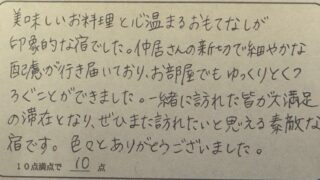 美味しいお料理と心温まるおもてなしが
印象的な宿でした。仲居さんの親切で細やかな
配慮が行き届いており、お部屋でもゆっくりとくつ
ろぐことができました。一緒に訪れた皆が大満足
の滞在となり、ぜひまた訪れたいと思える素敵な
宿です。色々とありがとうございました。
10点満点で 10 点